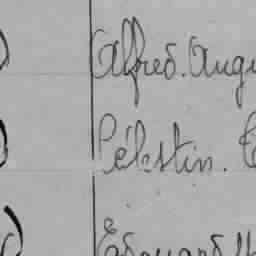 Alfred. Augu
Célestin.
Edouard